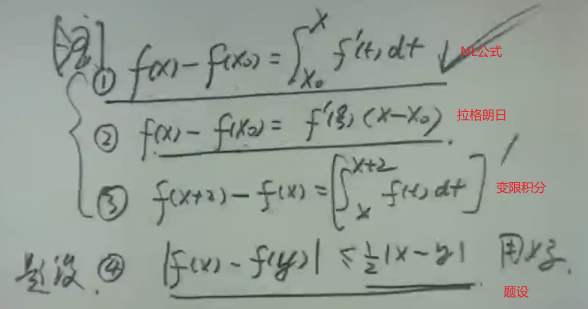 [注]
① f(x)-f(x₀)=∫_{x₀}^{x} f'(t)dt NL公式
② f(x)-f(x₀)= f'(ξ)(x-x₀) 拉格朗日
③ f(x+2)-f(x)=[∫_{x}^{x+2} f(t)dt]' 变限积分
题设. ④ |f(x)-f(y)| ≤ ½|x-y| 用
题设